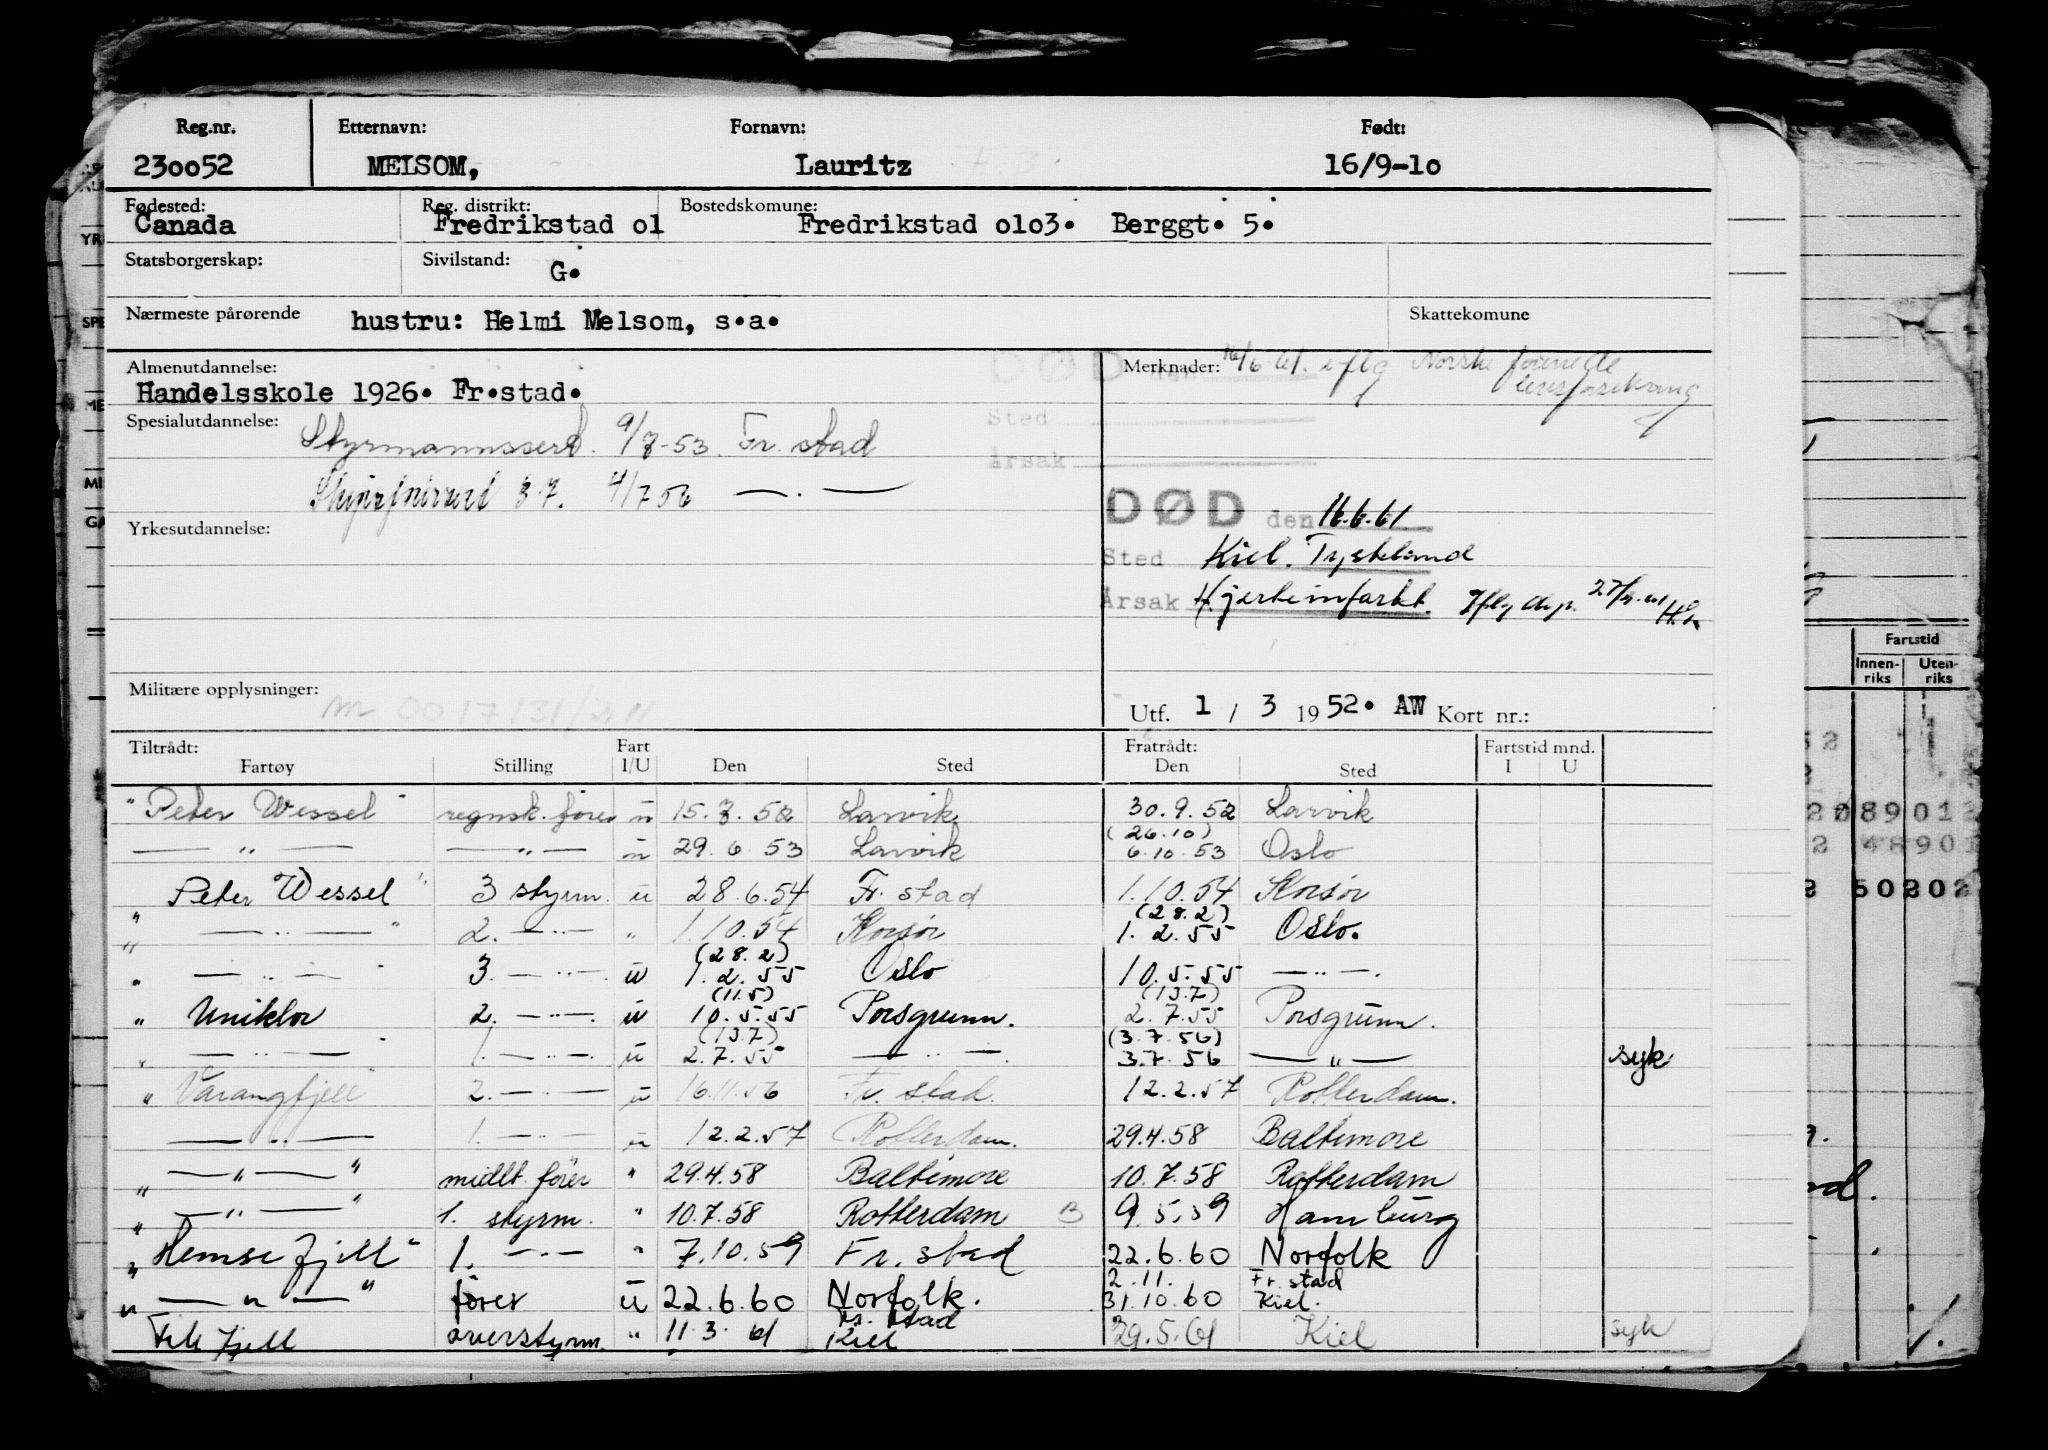 Reg.nr. Etternavn: Fornavn: Født:
230052 MELSOM, Lauritz 16/9-10
Fødested: Reg. distrikt: Bostedskomune:
Canada Fredrikstad 01 Fredrikstad 0103. Berggt. 5.
Statsborgerskap: Sivilstand: G.
Nærmeste pårørende hustru: Helmi Melsom, s.a. Skattekomune
Almenutdannelse: Merknader: 16/6 61. iflg Norske forenede livsforsikring
Handelsskole 1926. Fr.stad.
DØD den
Sted
Årsak
Spesialutdannelse: Styrmannssert. 9/7-53. Fr. stad
4/7 56 — . —
Yrkesutdannelse:
DØD den 16.6.61
Sted Kiel. Tyskland
Årsak Hjerteinfarkt. Iflg
Militære opplysninger:
Utf. 1 / 3 1952. AW Kort nr.:
Tiltrådt: Fart Fratrådt: Fartstid mnd.
Fartøy Stilling I/U Den Sted Den Sted I U
"Peter Wessel" regnsk.fører u 15.7.52 Larvik 30.9.52 Larvik
— " — — " — u 29.6.53 Larvik (26.10) 6.10.53 Oslo
Peter Wessel" 3 styrm. u 28.6.54 Fr. stad 1.10.54 Korsør
" — " — " 2. — " — " 1.10.54 Korsør (28.2) 1.2.55 Oslo.
" — " — " 3. — " — u (28.2) 1.2.55 Oslo 10.5.55 — " —.
" Uniklor 2. — " — u (11.5) 10.5.55 Porsgrunn. (13.7) 2.7.55 Porsgrunn.
" — " — " 1. — " — u (13.7) 2.7.55 — " — (3.7.56) 3.7.56 — " — syk
" Varangfjell" 2. — " — u 16.11.56 Fr. stad. 12.2.57 Rotterdam.
— " — 1. — " — u 12.2.57 Rotterdam. 29.4.58 Baltimore
" — " — " midlt. fører " 29.4.58 Baltimore 10.7.58 Rotterdam
" — " — " 1. styrm. " 10.7.58 Rotterdam B 9.5.59 Hamburg
" Hemsefjell" 1. — " — " 7.10.59 Fr. stad 22.6.60 Norfolk
" — " — " fører u 22.6.60 Norfolk. 2.11. Fr. stad 31.10.60 Kiel.
overstyrm. " 11.3.61 Fr. stad Kiel 29.5.61 Kiel syk
Fartstid
Innen-riks Uten-riks